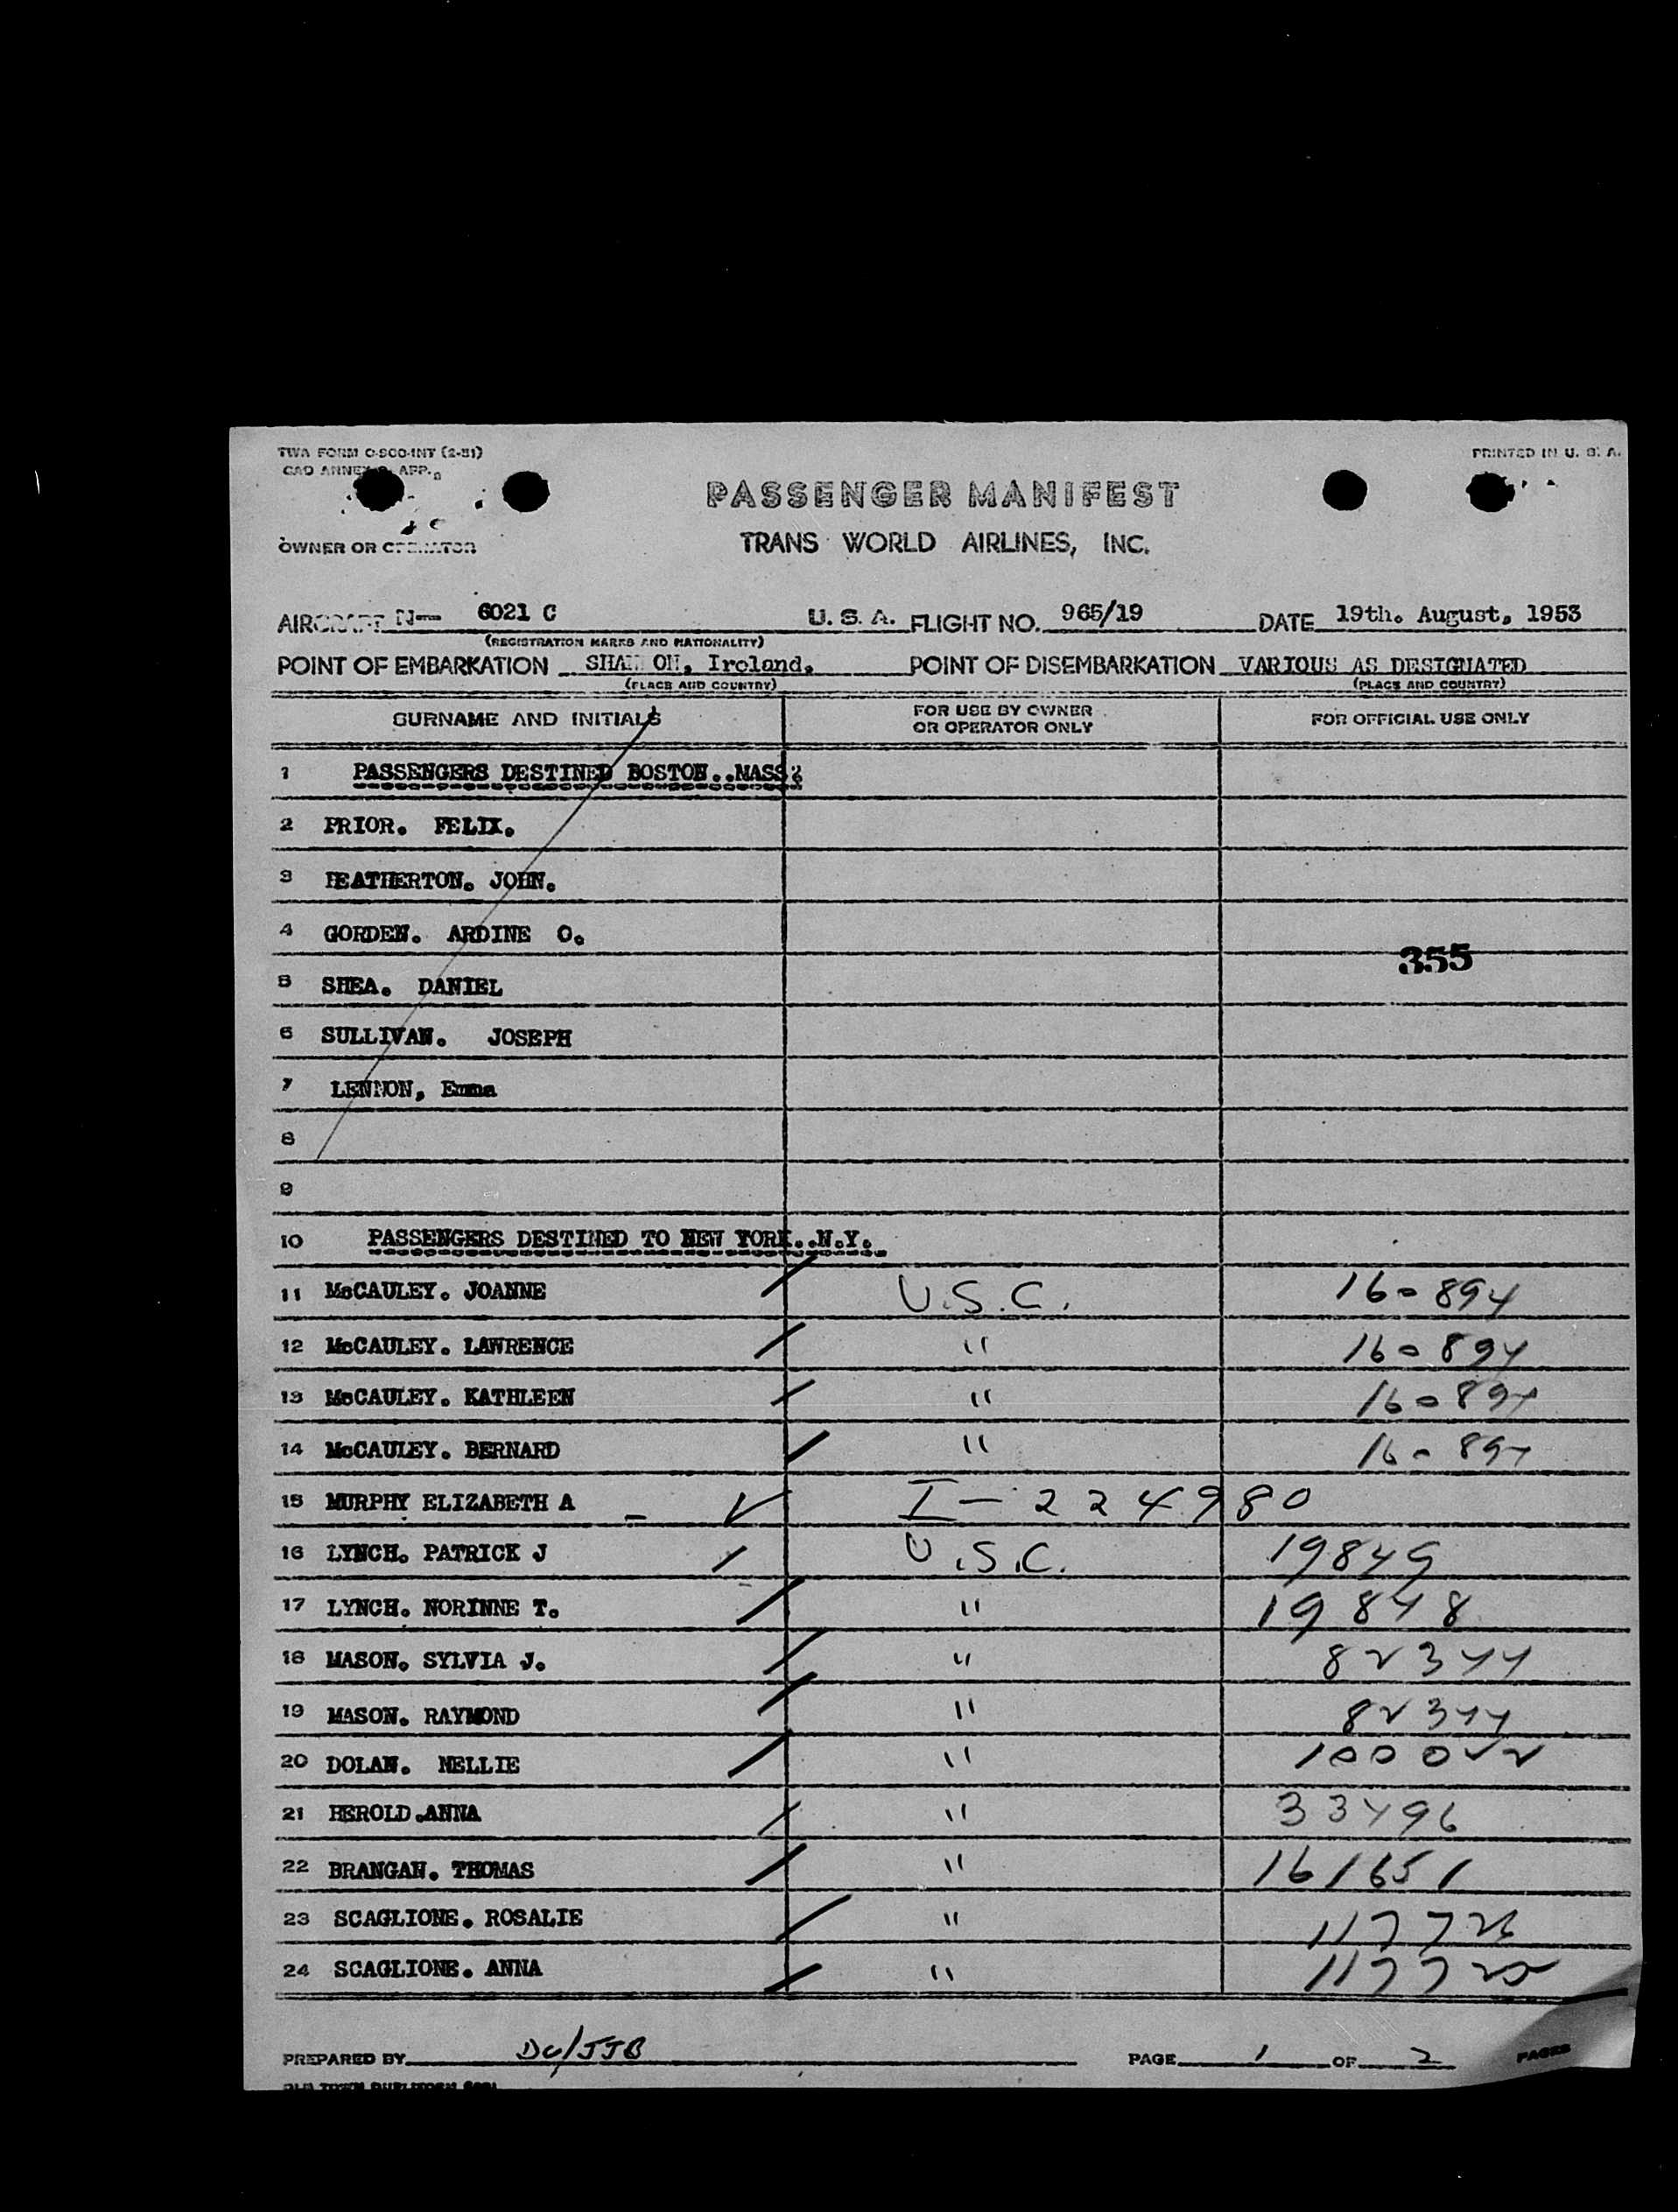 TWA FORM O-800-INT (2-51)
PRINTED IN U. S. A.
CAO ANNEX 9, APP.
PASSENGER MANIFEST
OWNER OR OPERATOR
TRANS WORLD AIRLINES, INC.
AIRCRAFT N— 6021 C U. S. A. FLIGHT NO. 965/19 DATE 19th. August, 1953
(REGISTRATION MARKS AND NATIONALITY)
POINT OF EMBARKATION SHANNON, Ireland. POINT OF DISEMBARKATION VARIOUS AS DESIGNATED
(PLACE AND COUNTRY) (PLACE AND COUNTRY)
SURNAME AND INITIALS FOR USE BY OWNER OR OPERATOR ONLY FOR OFFICIAL USE ONLY
1 PASSENGERS DESTINED BOSTON..MASS
2 PRIOR. FELIX.
3 HEATHERTON. JOHN.
4 GORDEN. ARDINE O.
355
5 SHEA. DANIEL
6 SULLIVAN. JOSEPH
7 LENNON, Emma
8
9
10 PASSENGERS DESTINED TO NEW YORK..N.Y.
11 McCAULEY. JOANNE U.S.C. 160894
12 McCAULEY. LAWRENCE " 160894
13 McCAULEY. KATHLEEN " 160894
14 McCAULEY. BERNARD " 160894
15 MURPHY ELIZABETH A I-224980
16 LYNCH. PATRICK J U.S.C. 19849
17 LYNCH. NORINNE T. " 19848
18 MASON. SYLVIA J. " 82344
19 MASON. RAYMOND " 82344
20 DOLAN. NELLIE " 100022
21 HEROLD.ANNA " 33496
22 BRANGAN. THOMAS " 161651
23 SCAGLIONE. ROSALIE " 117726
24 SCAGLIONE. ANNA " 117725
PREPARED BY DC/JJB PAGE 1 OF 2 PAGES